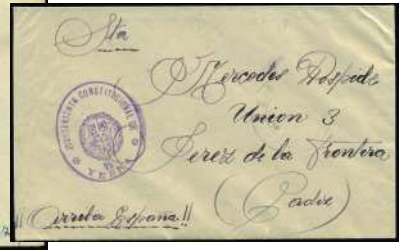 Sta
Mercedes Pospide
Union 3
Jerez de la Frontera
(Cadiz)
AYUNTAMIENTO CONSTITUCIONAL DE
!! Arriba España !!